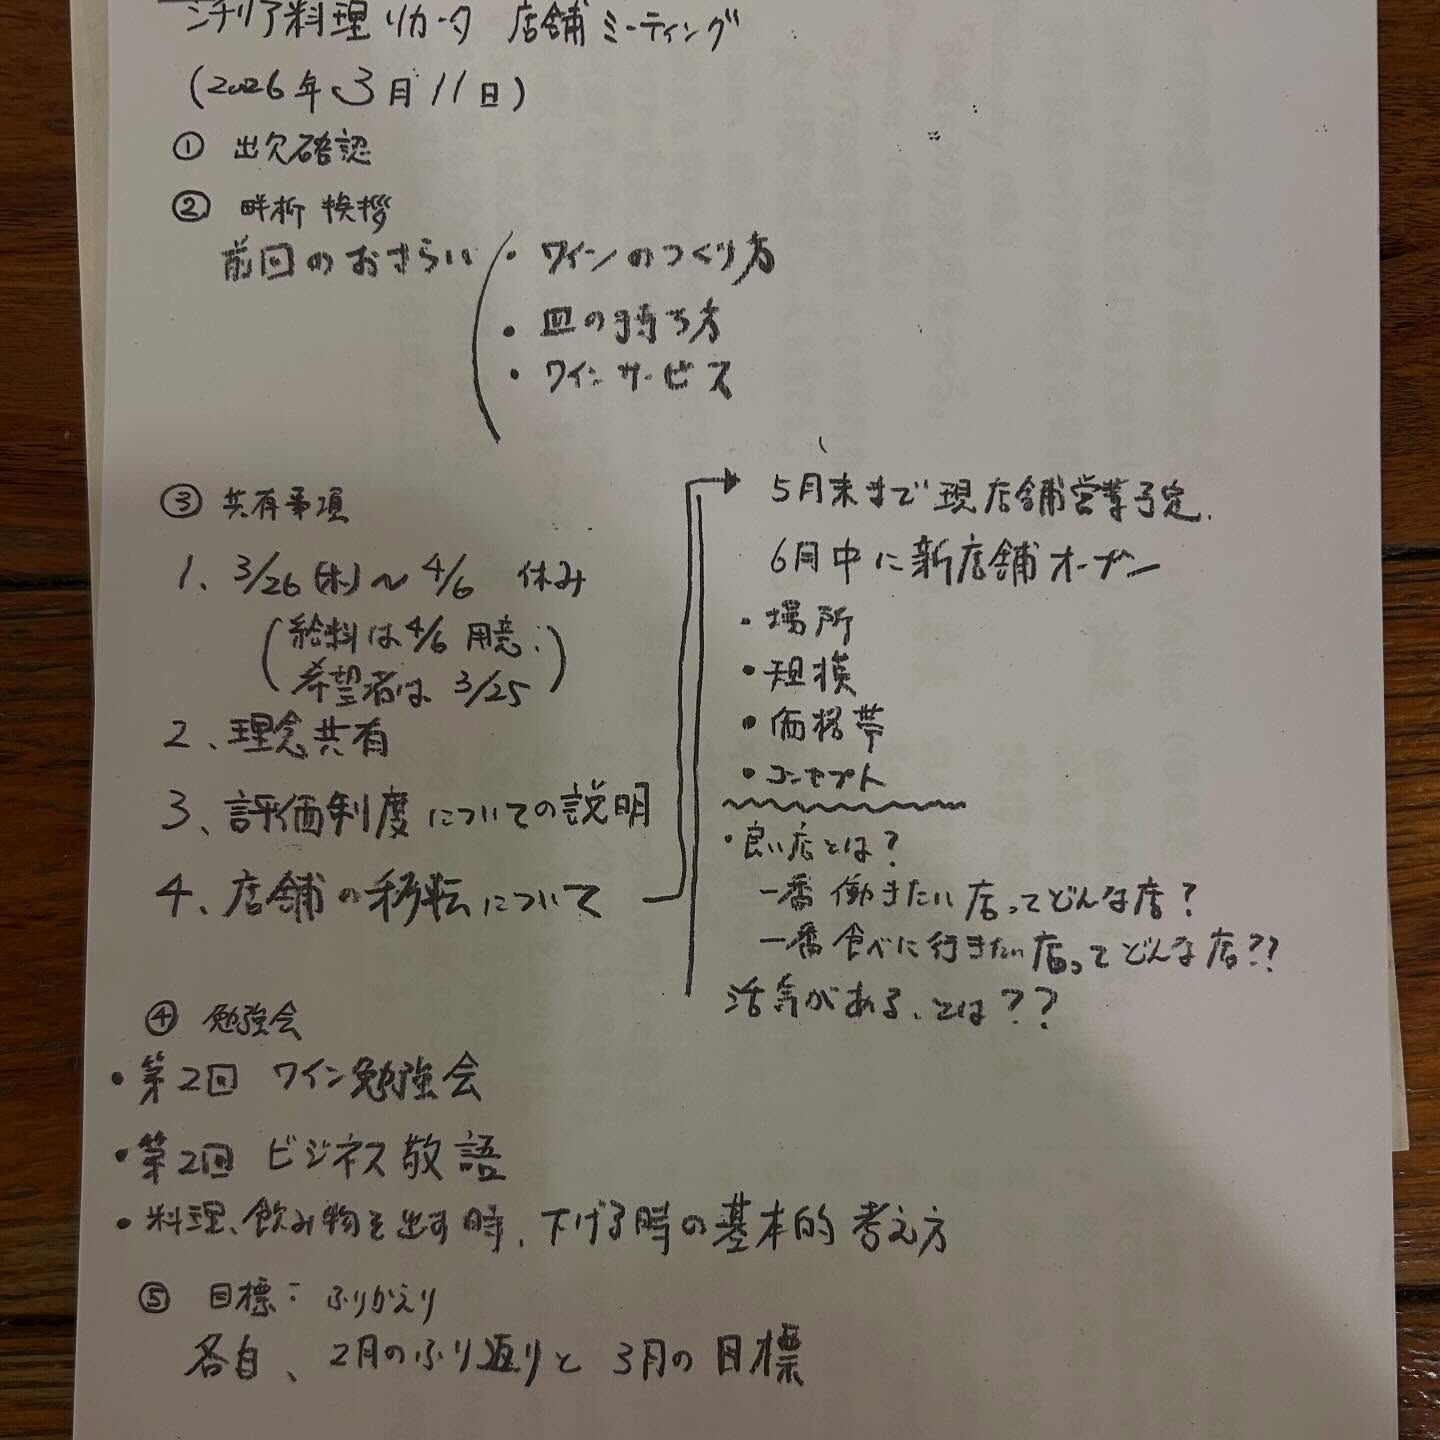 シチリア料理リカータ 店舗ミーティング
(2026年3月11日)
① 出欠確認
② 畔柳 挨拶
前回のおさらい
・ワインのつくり方
・皿の持ち方
・ワインサービス
③ 共有事項
1、3/26(木)〜4/6 休み
(給料は4/6 用意.
希望者は 3/25)
2、理念共有
3、評価制度についての説明
4、店舗の移転について
5月末まで現店舗営業予定.
6月中に新店舗オープン
・場所
・規模
・価格帯
・コンセプト
・良い店とは?
一番働きたい店ってどんな店?
一番食べに行きたい店ってどんな店??
活気がある、とは??
④ 勉強会
・第2回 ワイン勉強会
・第2回 ビジネス敬語
・料理、飲み物を出す時、下げる時の基本的考え方
⑤ 目標:ふりかえり
各自、2月のふり返りと3月の目標